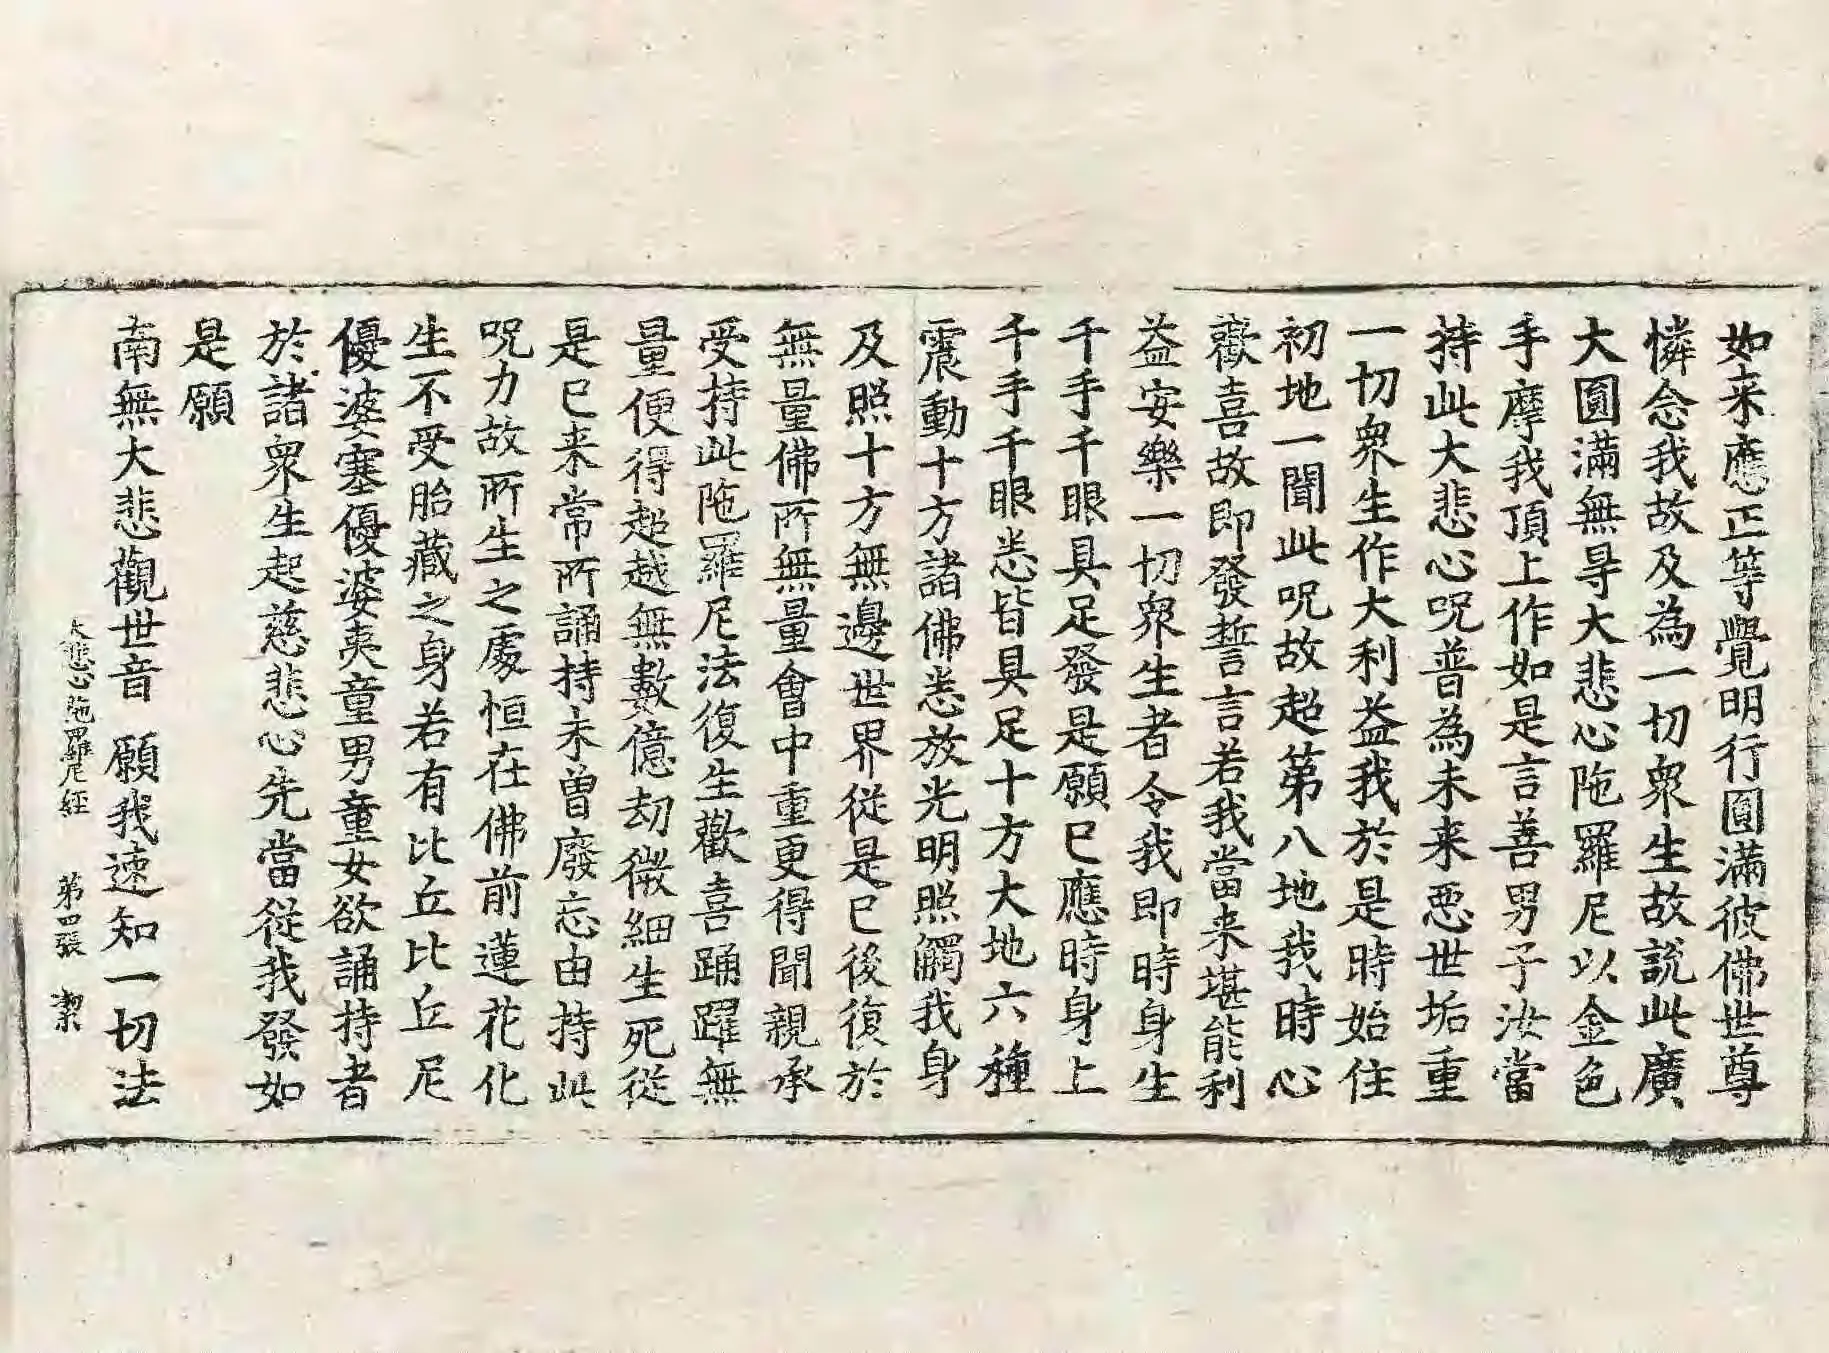 如来應正等覺明行圓滿彼佛世尊
憐念我故及為一切衆生故說此廣
大圓滿無㝵大悲心陁羅尼以金色
手摩我頂上作如是言善男子汝當
持此大悲心呪普為未来惡世垢重
一切衆生作大利益我於是時始住
初地一聞此呪故超第八地我時心
歡喜故即發誓言若我當来堪能利
益安樂一切衆生者令我即時身生
千手千眼具足發是願已應時身上
千手千眼悉皆具足十方大地六種
震動十方諸佛悉放光明照觸我身
及照十方無邊世界從是已後復於
無量佛所無量會中重更得聞親承
受持此陁羅尼法復生歡喜踊躍無
量便得超越無數億劫微細生死從
是已来常所誦持未曾廢忘由持此
呪力故所生之處恒在佛前蓮花化
生不受胎藏之身若有比丘比丘尼
優婆塞優婆夷童男童女欲誦持者
於諸衆生起慈悲心先當從我發如
是願
南無大悲觀世音 願我速知一切法
大悲心陁羅尼經 第四張 潔